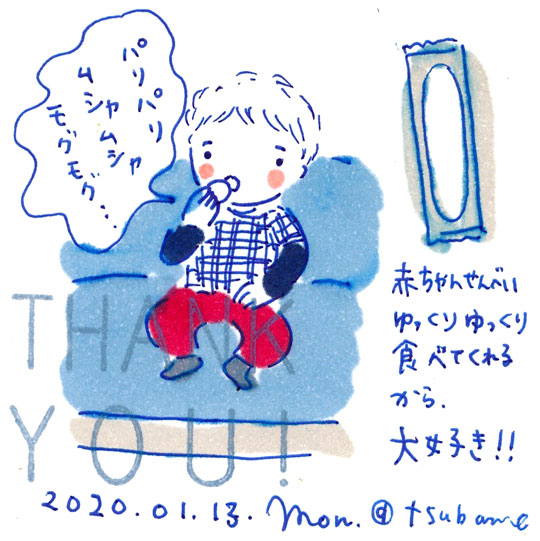 パリパリ
ムシャムシャ
モグモグ...
赤ちゃんせんべい
ゆっくりゆっくり
食べてくれる
から、
大好き!!
THANK
YOU!
2020.01.13. Mon. @tsubame